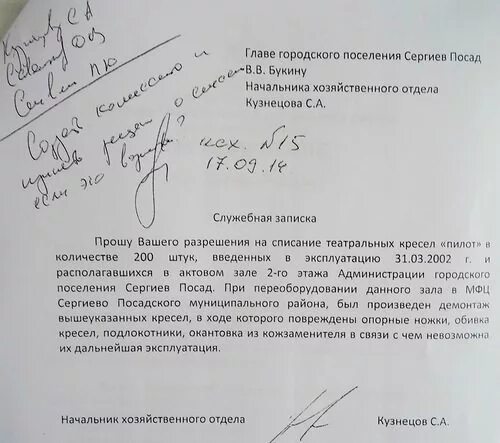 Кузнецов С А
Главе городского поселения Сергиев Посад
В.В. Букину
Начальника хозяйственного отдела
Кузнецова С.А.
Создать комиссию и
принять решение о списании
если это возможно?
исх. №15
17.09.14
Служебная записка
Прошу Вашего разрешения на списание театральных кресел «пилот» в
количестве 200 штук, введенных в эксплуатацию 31.03.2002 г. и
располагавшихся в актовом зале 2-го этажа Администрации городского
поселения Сергиев Посад. При переоборудовании данного зала в МФЦ
Сергиево Посадского муниципального района, был произведен демонтаж
вышеуказанных кресел, в ходе которого повреждены опорные ножки, обивка
кресел, подлокотники, окантовка из кожзаменителя в связи с чем невозможна
их дальнейшая эксплуатация.
Начальник хозяйственного отдела
Кузнецов С.А.